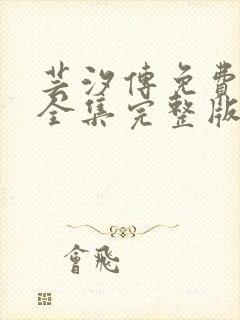 芸汐傳免費
全集完整版
會飛